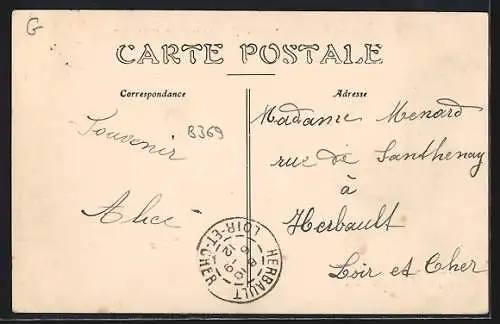 G
CARTE POSTALE
Correspondance
Adresse
Souvenir
B369
Alice
Madame Menard
rue de Santhenay
à
Herbault
Loir et Cher
HERBAULT
LOIR-ET-CHER